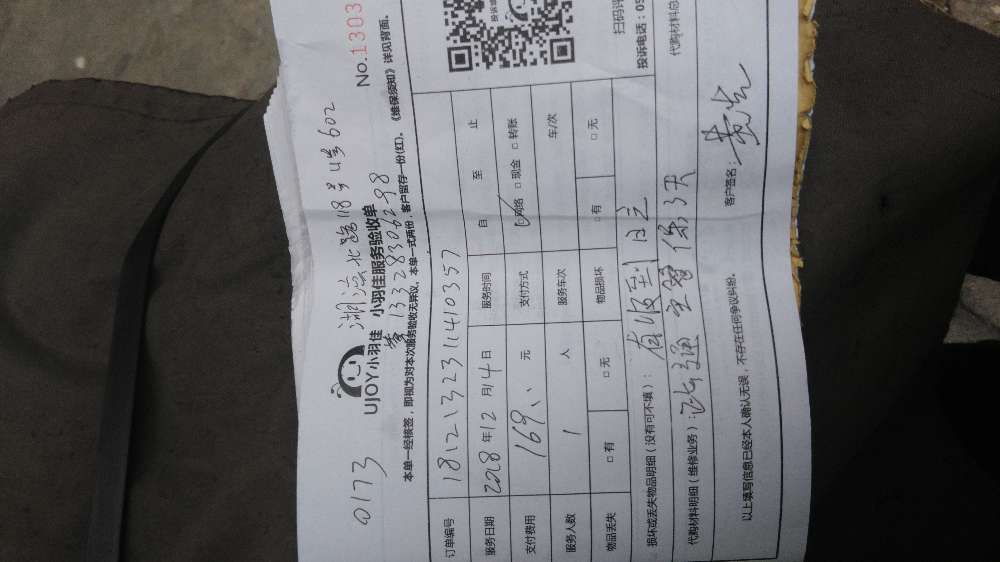 0173 湖滨北路118号4号602
No.1303
UJOY小羽佳 小羽佳服务验收单
黄 13328306298
本单一经接签，即视为对本次服务验收无异议，本单一式两份，客户留存一份(红)。《维保须知》详见背面。
订单编号 181213231140357
服务日期 2018年12月14日 服务时间 自 至 止
支付费用 169、、元 支付方式 ☑网络 □现金 □转账
服务人数 1 人 服务车次 车/次
物品丢失 □有 □无 物品损坏 □有 □无
损坏或丢失物品明细（没有可不填）：
代购材料明细（维修业务）：
代购材料总
以上填写信息已经本人确认无误，不存在任何争议纠纷。
客户签名：
扫码评
投诉电话：05